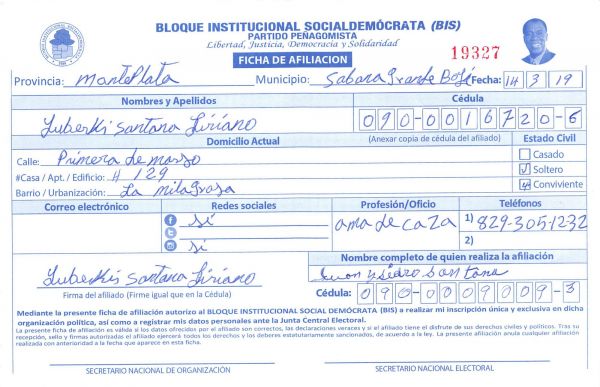 BLOQUE INSTITUCIONAL SOCIALDEMÓCRATA (BIS)
PARTIDO PEÑAGOMISTA
Libertad, Justicia, Democracia y Solidaridad
FICHA DE AFILIACION
19327
Provincia: Monte Plata Municipio: Sabana Grande Boyá Fecha: 14 3 19
Nombres y Apellidos Cédula
Yuberkis Santana Liriano 090-0016720-6
(Anexar copia de cédula del afiliado)
Domicilio Actual Estado Civil
Calle: Primera de marzo Casado
#Casa / Apt. / Edificio: # 129 Soltero
Barrio / Urbanización: La milagrosa Conviviente
Correo electrónico Redes sociales Profesión/Oficio Teléfonos
sí ama de caza 1) 829-305-1232
sí 2)
Nombre completo de quien realiza la afiliación
Yuberkis Santana Liriano Juan ysidro santana
Firma del afiliado (Firme igual que en la Cédula) Cédula: 090-0009009-3
Mediante la presente ficha de afiliación autorizo al BLOQUE INSTITUCIONAL SOCIAL DEMÓCRATA (BIS) a realizar mi inscripción única y exclusiva en dicha
organización política, así como a registrar mis datos personales ante la Junta Central Electoral.
La presente ficha de afiliación es válida si los datos ofrecidos por el afiliado son correctos, las declaraciones veraces y si el afiliado tiene el disfrute de sus derechos civiles y políticos. Tras su
recepción, sello y firmas autorizadas el afiliado ejercerá todos los derechos y los deberes estatutariamente sancionados, de acuerdo a la ley. La presente afiliación anula cualquier afiliación
realizada con anterioridad a la fecha que aparece en esta ficha.
SECRETARIO NACIONAL DE ORGANIZACIÓN SECRETARIO NACIONAL ELECTORAL